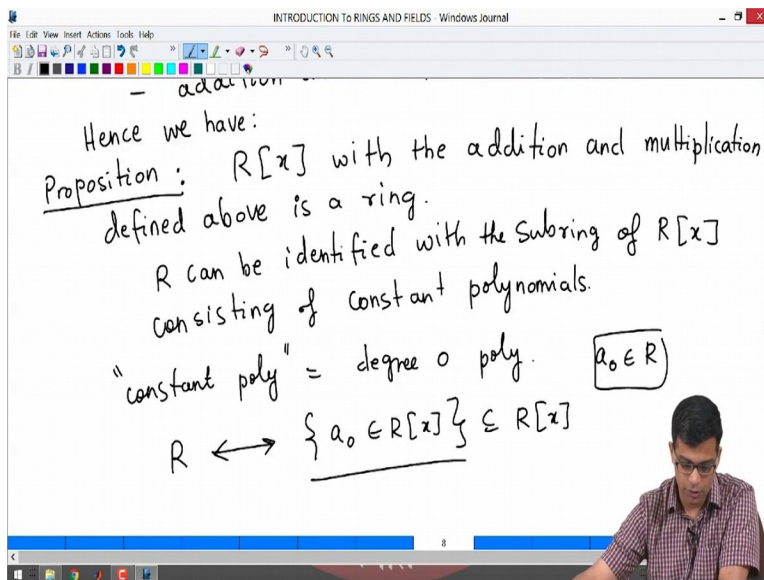 INTRODUCTION To RINGS AND FIELDS - Windows Journal
File Edit View Insert Actions Tools Help
B I
Hence we have:
Proposition: R[x] with the addition and multiplication
defined above is a ring.
R can be identified with the subring of R[x]
consisting of constant polynomials.
"constant poly" = degree 0 poly. a₀ ∈ R
R ⟷ { a₀ ∈ R[x] } ⊆ R[x]
8